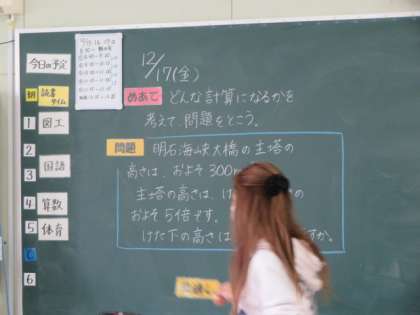 今日の予定
朝 読書タイム
1 図工
2
3 国語
4 算数
5 体育
6
6
12/17(金)
めあて どんな計算になるかを
考えて、問題をとこう。
問題 明石海峡大橋の主塔の
高さは、およそ300m
主塔の高さは、け の
およそ5倍です。
けた下の高さは すか。